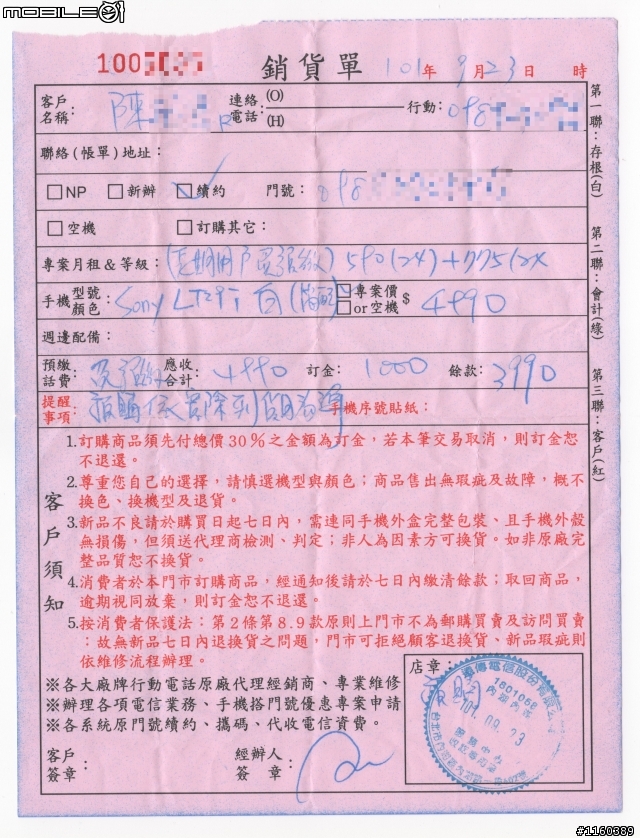 MOBILE01
100
銷貨單 101年 9月23日 時
客戶名稱: 陳
連絡電話: (O)
(H)
行動: 098
聯絡(帳單)地址:
□NP □新辦 □續約 門號: 098
□空機 □訂購其它:
專案月租&等級: 590(24)+775(2X
手機型號顏色: Sony LT29i 白 □專案價 □or空機 $ 4990
週邊配備:
預繳話費: 應收合計: 4990 訂金: 1000 餘款: 3990
提醒事項 手機序號貼紙:
客戶須知
1.訂購商品須先付總價30%之金額為訂金,若本筆交易取消,則訂金恕
不退還。
2.尊重您自己的選擇,請慎選機型與顏色;商品售出無瑕疵及故障,概不
換色、換機型及退貨。
3.新品不良請於購買日起七日內,需連同手機外盒完整包裝、且手機外殼
無損傷,但須送代理商檢測、判定;非人為因素方可換貨。如非原廠完
整品質恕不換貨。
4.消費者於本門市訂購商品,經通知後請於七日內繳清餘款;取回商品,
逾期視同放棄,則訂金恕不退還。
5.按消費者保護法:第2條第8.9款原則上門市不為郵購買賣及訪問買賣
:故無新品七日內退換貨之問題,門市可拒絕顧客退換貨、新品瑕疵則
依維修流程辦理。
※各大廠牌行動電話原廠代理經銷商、專業維修
※辦理各項電信業務、手機搭門號優惠專案申請
※各系統原門號續約、攜碼、代收電信資費。
店章:
101.09.23
客戶簽章:
經辦人簽章:
第一聯:存根(白)
第二聯:會計(綠)
第三聯:客戶(紅)
#1160389